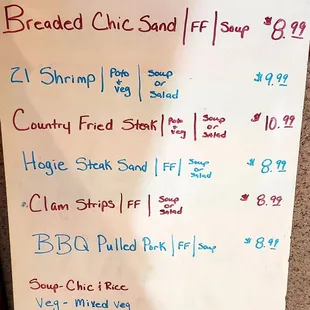 Breaded Chic Sand | FF | Soup $8.99
21 Shrimp | Poto + veg | Soup or Salad $9.99
Country Fried Steak | Poto + veg | Soup or Salad $10.99
Hogie Steak Sand | FF | Soup or Salad $8.99
Clam Strips | FF | Soup or Salad $8.99
BBQ Pulled Pork | FF | Soup $8.99
Soup - Chic i Rice
Veg - Mixed Veg